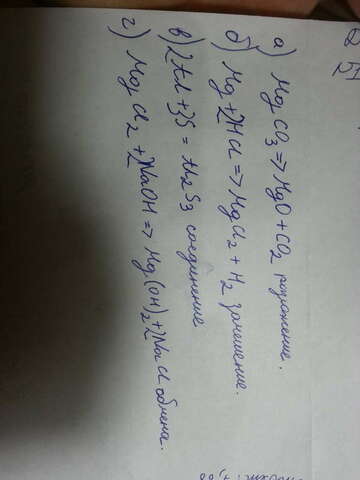 а) MgCO3 => MgO + CO2 разложение.
б) Mg + 2HCl => MgCl2 + H2 замещение.
в) 2Al + 3S = Al2S3 соединение
г) MgCl2 + 2NaOH => Mg(OH)2 + 2NaCl обмена.